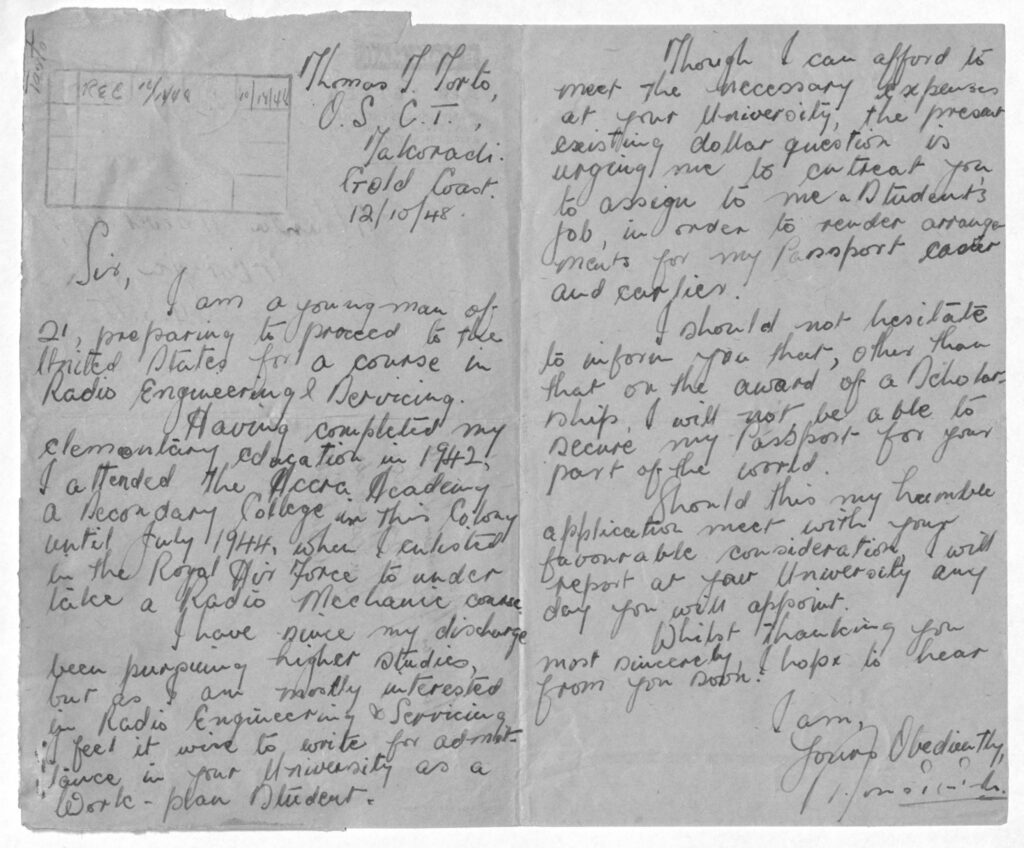 Torto
REE 10/19/48 10/19/48
Thomas T. Torto,
O. S. C. T.,
Takoradi.
Gold Coast.
12/10/48.
Sir,
I am a young man of
21, preparing to proceed to the
United States for a course in
Radio Engineering & Servicing.
Having completed my
elementary education in 1942,
I attended the Accra Academy
a Secondary College in this Colony
until July 1944, when I enlisted
in the Royal Air Force to under
take a Radio Mechanic course.
I have since my discharge
been pursuing higher studies,
but as I am mostly interested
in Radio Engineering & Servicing
I feel it wise to write for admit-
tance in your University as a
Work-plan Student.
Though I can afford to
meet the necessary expenses
at your University, the present
existing dollar question is
urging me to entreat you,
to assign to me a Student's
job, in order to render arrange
ments for my Passport easier
and earlier.
I should not hesitate
to inform you that, other than
that on the award of a Scholar-
ship, I will not be able to
secure my Passport for your
part of the world.
Should this my humble
application meet with your
favourable consideration, I will
report at your University any
day you will appoint.
Whilst thanking you
most sincerely, I hope to hear
from you soon.
I am,
Yours Obediently,